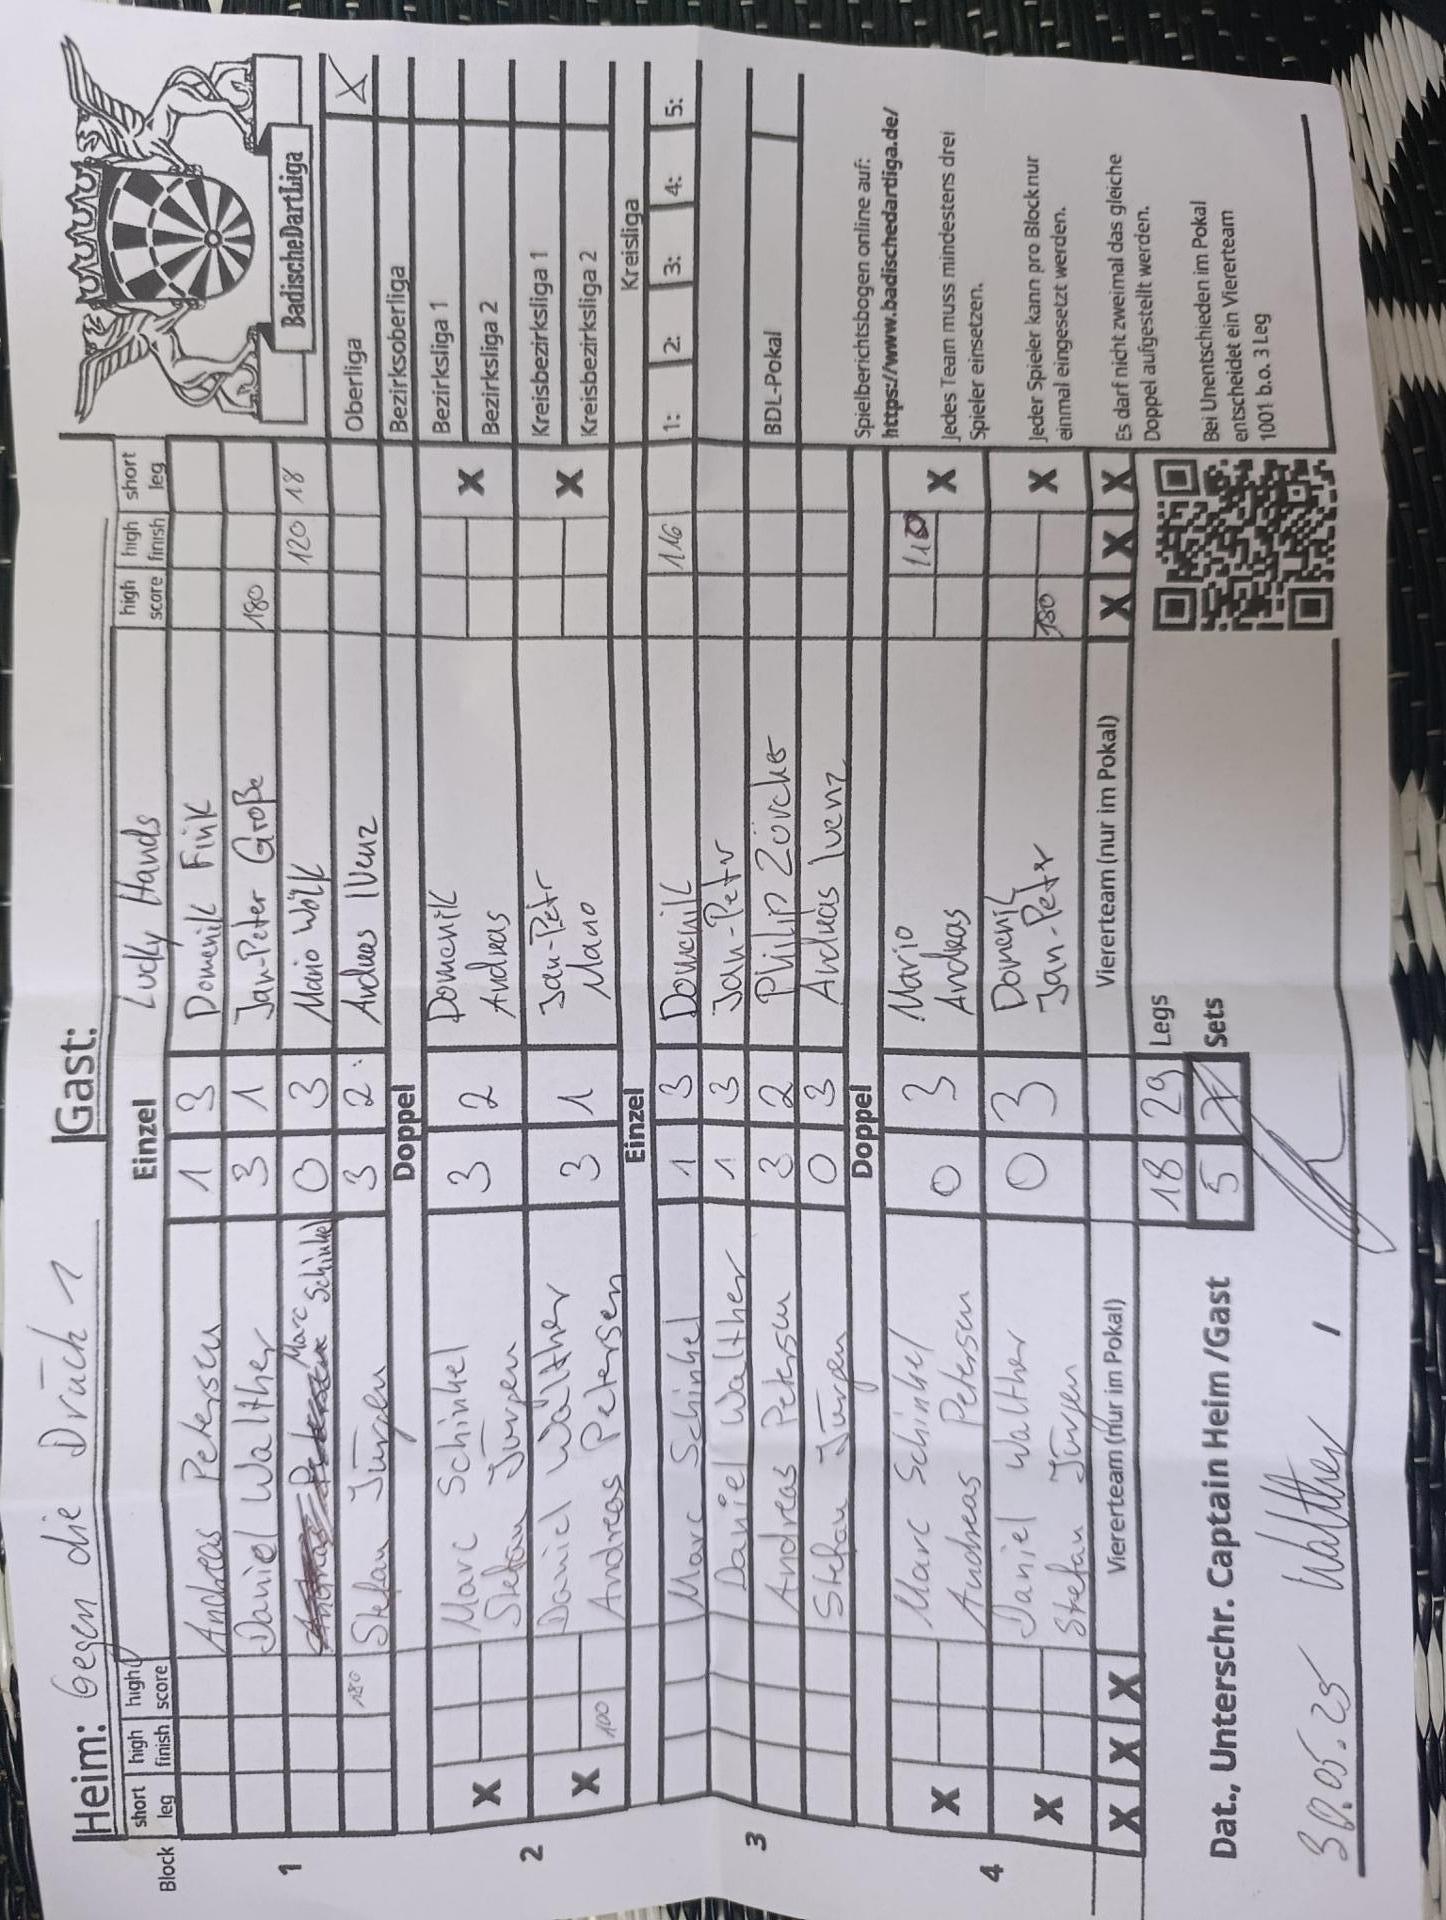 Heim: Gegen die Drück 1 Gast: Lucky Hands
BadischeDartLiga
Block short leg high finish high score Einzel high score high finish short leg
1
Andreas Petersen 1 3 Domenik Fink
Daniel Walther 3 1 Jan-Peter Große 180
Marc Schinkel 0 3 Mario Wölk 120 18
180 Stefan Jürgen 3 2 Andreas Ivenz
Doppel
2
X Marc Schinkel 3 2 Domenik X
Stefan Jürgen Andreas
X Daniel Walther 3 1 Jan-Petr X
100 Andreas Petersen Mario
Einzel
3
Marc Schinkel 1 3 Domenik 116
Daniel Walther 1 3 Jan-Petr
Andreas Petersen 3 2 Philip Zürcher
Stefan Jürgen 0 3 Andreas Ivenz
Doppel
4
X Marc Schinkel 0 3 Mario 110 X
Andreas Petersen Andreas
X Daniel Walther 0 3 Domenik X
Stefan Jürgen Jan-Peter 180
X X X Viererteam (nur im Pokal) Viererteam (nur im Pokal) X X X
18 29 Legs
5 7 Sets
Dat., Unterschr. Captain Heim /Gast
30.05.25 Walther
Oberliga X
Bezirksoberliga
Bezirksliga 1
Bezirksliga 2
Kreisbezirksliga 1
Kreisbezirksliga 2
Kreisliga
1: 2: 3: 4: 5:
BDL-Pokal
Spielberichtsbogen online auf:
https://www.badischedartliga.de/
Jedes Team muss mindestens drei
Spieler einsetzen.
Jeder Spieler kann pro Block nur
einmal eingesetzt werden.
Es darf nicht zweimal das gleiche
Doppel aufgestellt werden.
Bei Unentschieden im Pokal
entscheidet ein Viererteam
1001 b.o. 3 Leg